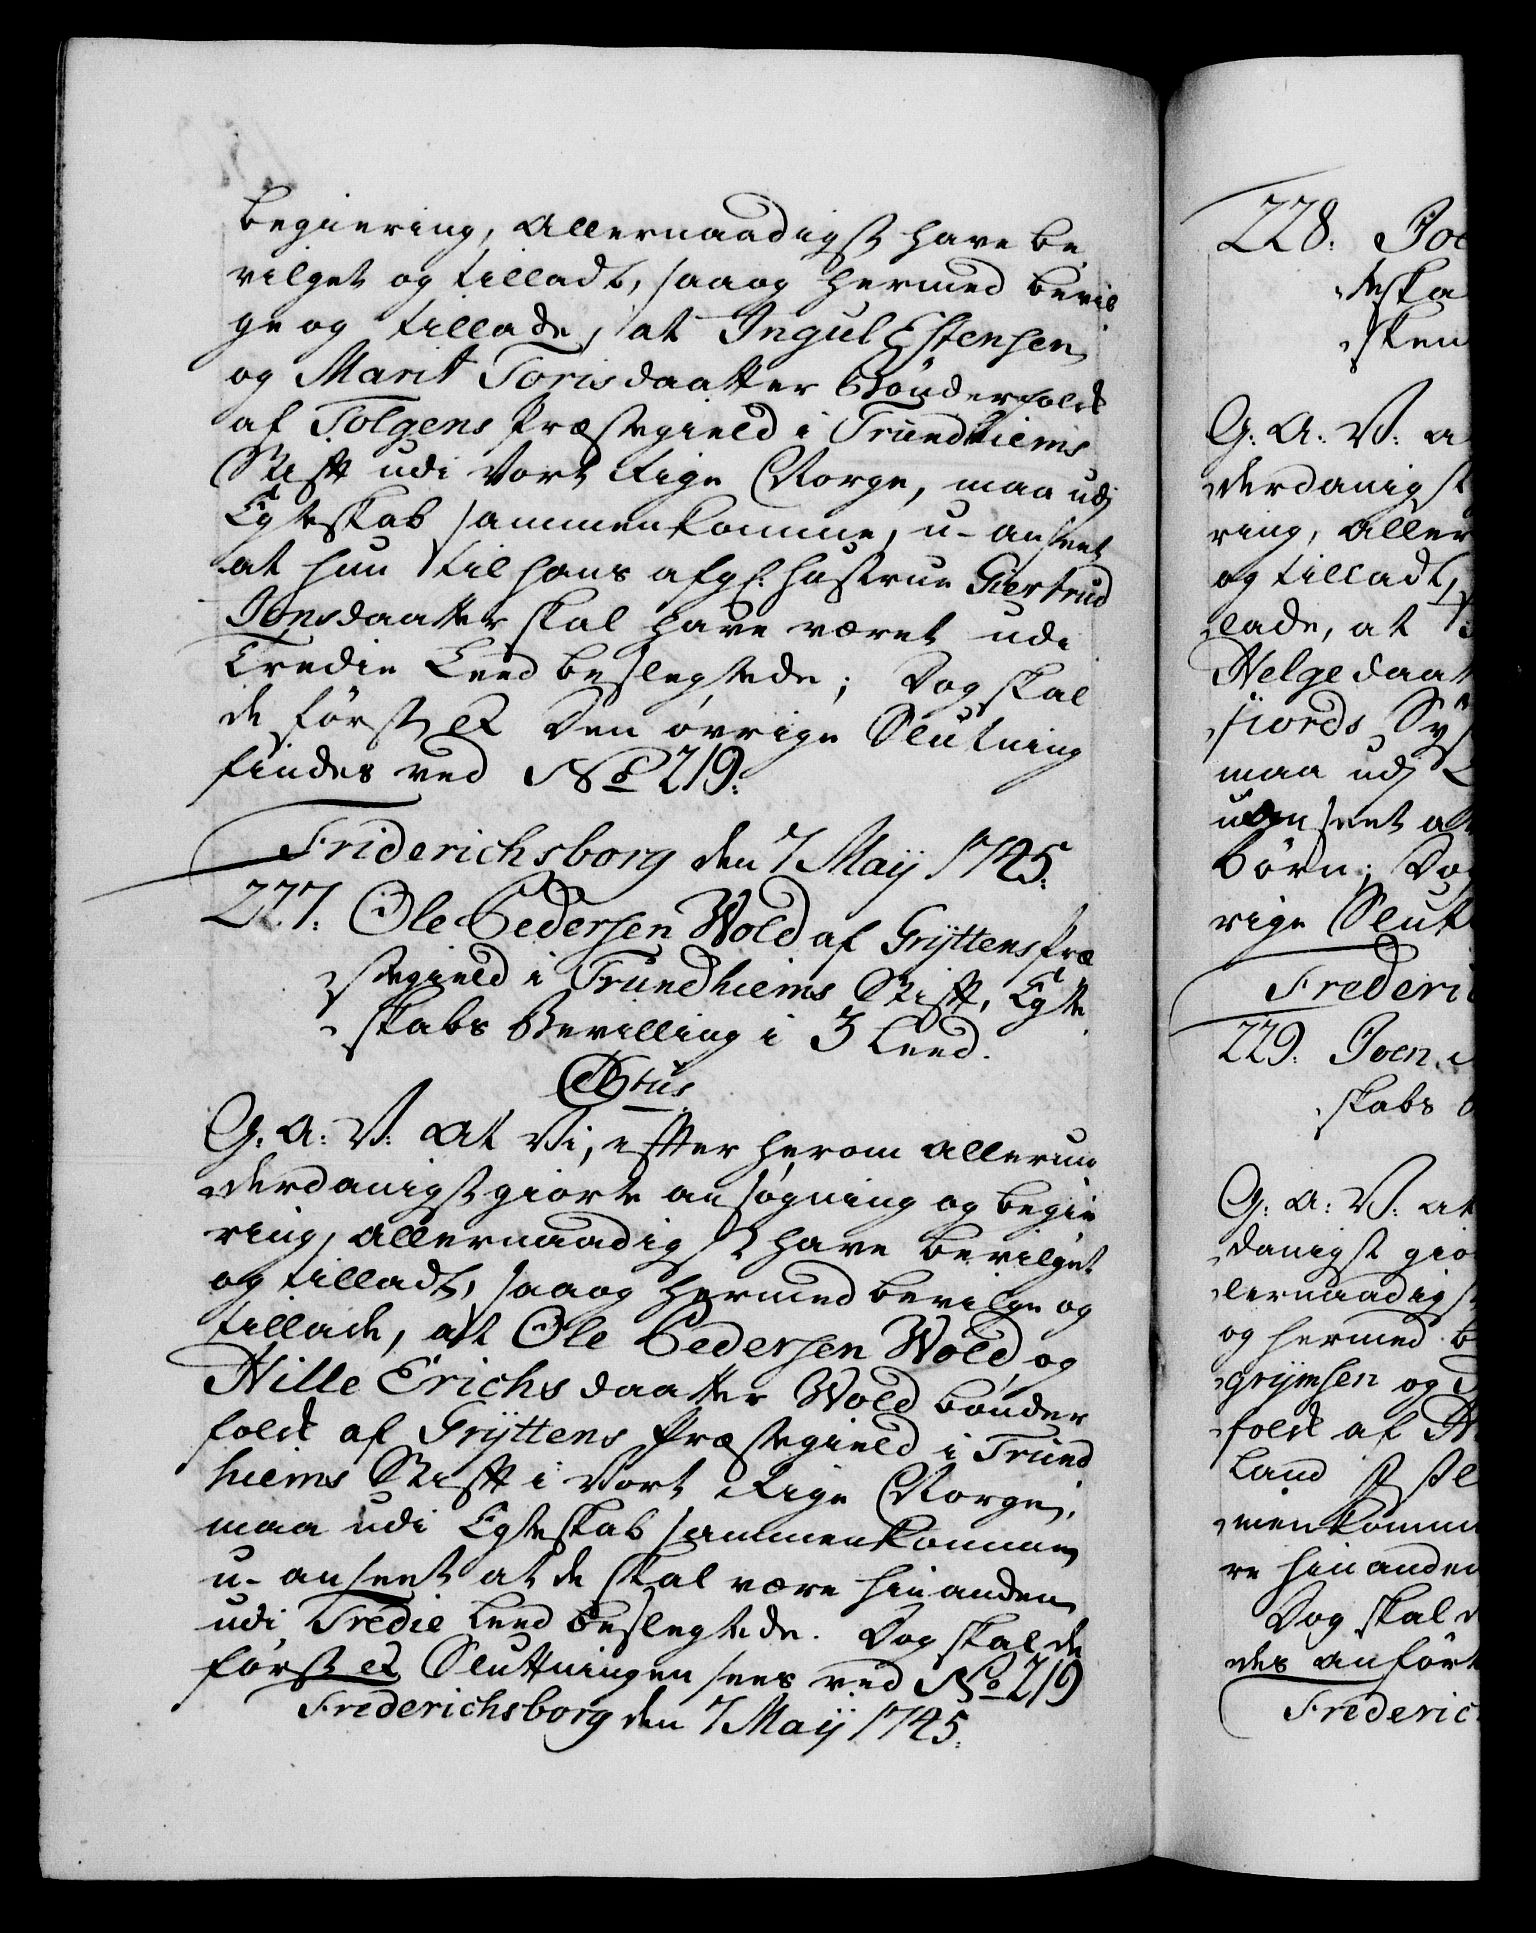 begiering, allernaadigst have be
vilget og tilladt, saa og hermed bevil
ge og tillade, at Ingul Estensen
og Marit Torisdaatter Bönderfolck
af Tolgens Præstegield i Trundhiems
Stift udi Vort Rige Norge, maa udj
Egteskab sammenkomme, u-anseet
at hun til hans afg: hustrue Giertrud
Jonsdaatter skal have været udi
Tredie Leed beslegtede; Dog skal
de först &c Den övrige Slutning
findes ved No 219:
Friderichsborg den 7 Maij 1745.
227. Ole Pedersen Wold af Grÿttens Præ
stegield i Trundhiems Stift, Egte
skabs Bevilling i 3 Leed.
G: A: V: at Vi, efter herom allerun
derdanigst giorte ansøgning og begie
ring, allernaadigst have bevilget
og tilladt, saa og hermed bevilge og
tillade, at Ole Pedersen Wold og
Hille Erichsdaatter Wold bönder
folck af Grÿttens Præstegield i Trund
hiems Stift i Vort Rige Norge,
maa udi Egteskab sammenkomme,
u-anseet at de skal være hinanden
udi Tredie Leed beslegtede. Dog skal de
först &c Sluttningen sees ved No 219
Frederichsborg den 7 Maij 1745.
228. Joe
sken
G: A: V: a
derdanigst
ring, aller
og tilladt,
lade, at
Helgedaat
fiords Sy
maa udj
uanseet at
börn; Dog
rige Slut
Frederi
229. Joen
skabs b
G: A: V: at
danigst gio
lernaadigst
og hermed b
grijmsen og
folck af
Land
menkomm
re hinanden
Dog skal d
des anfört
Frederic